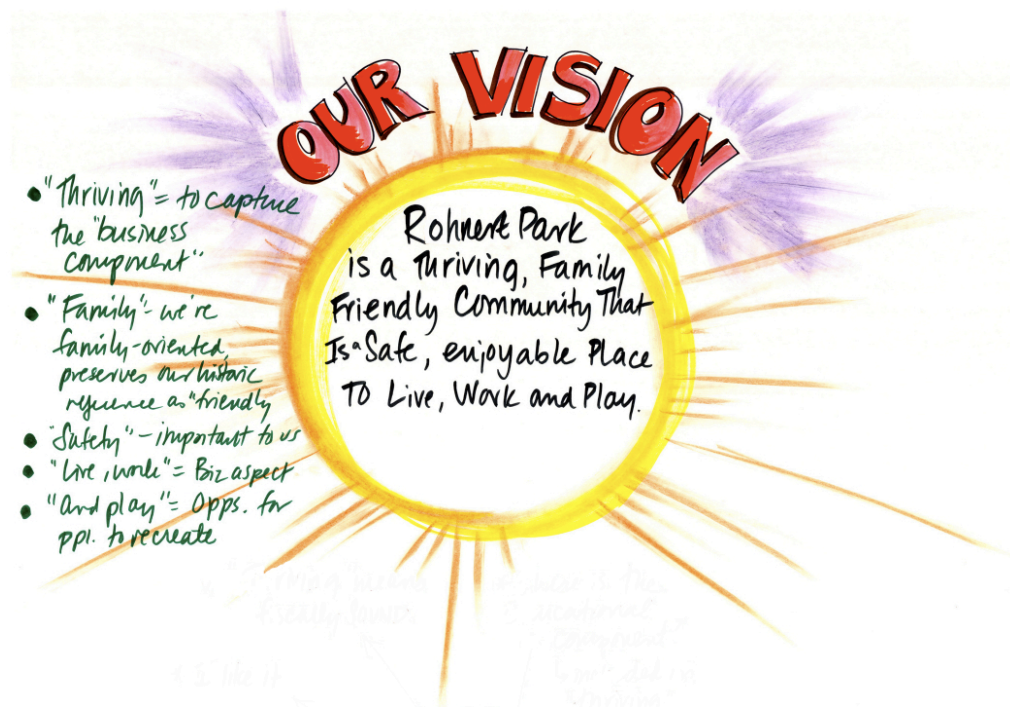 OUR VISION
Rohnert Park
is a Thriving, Family
Friendly Community That
Is a Safe, enjoyable Place
To Live, Work and Play.
• "Thriving" = to capture
the "business
component"
• "Family" - we're
family-oriented,
preserves our historic
reference as "friendly
• "Safety" - important to us
• "Live, work" = Biz aspect
• "And play" = Opps. for
ppl. to recreate
like it